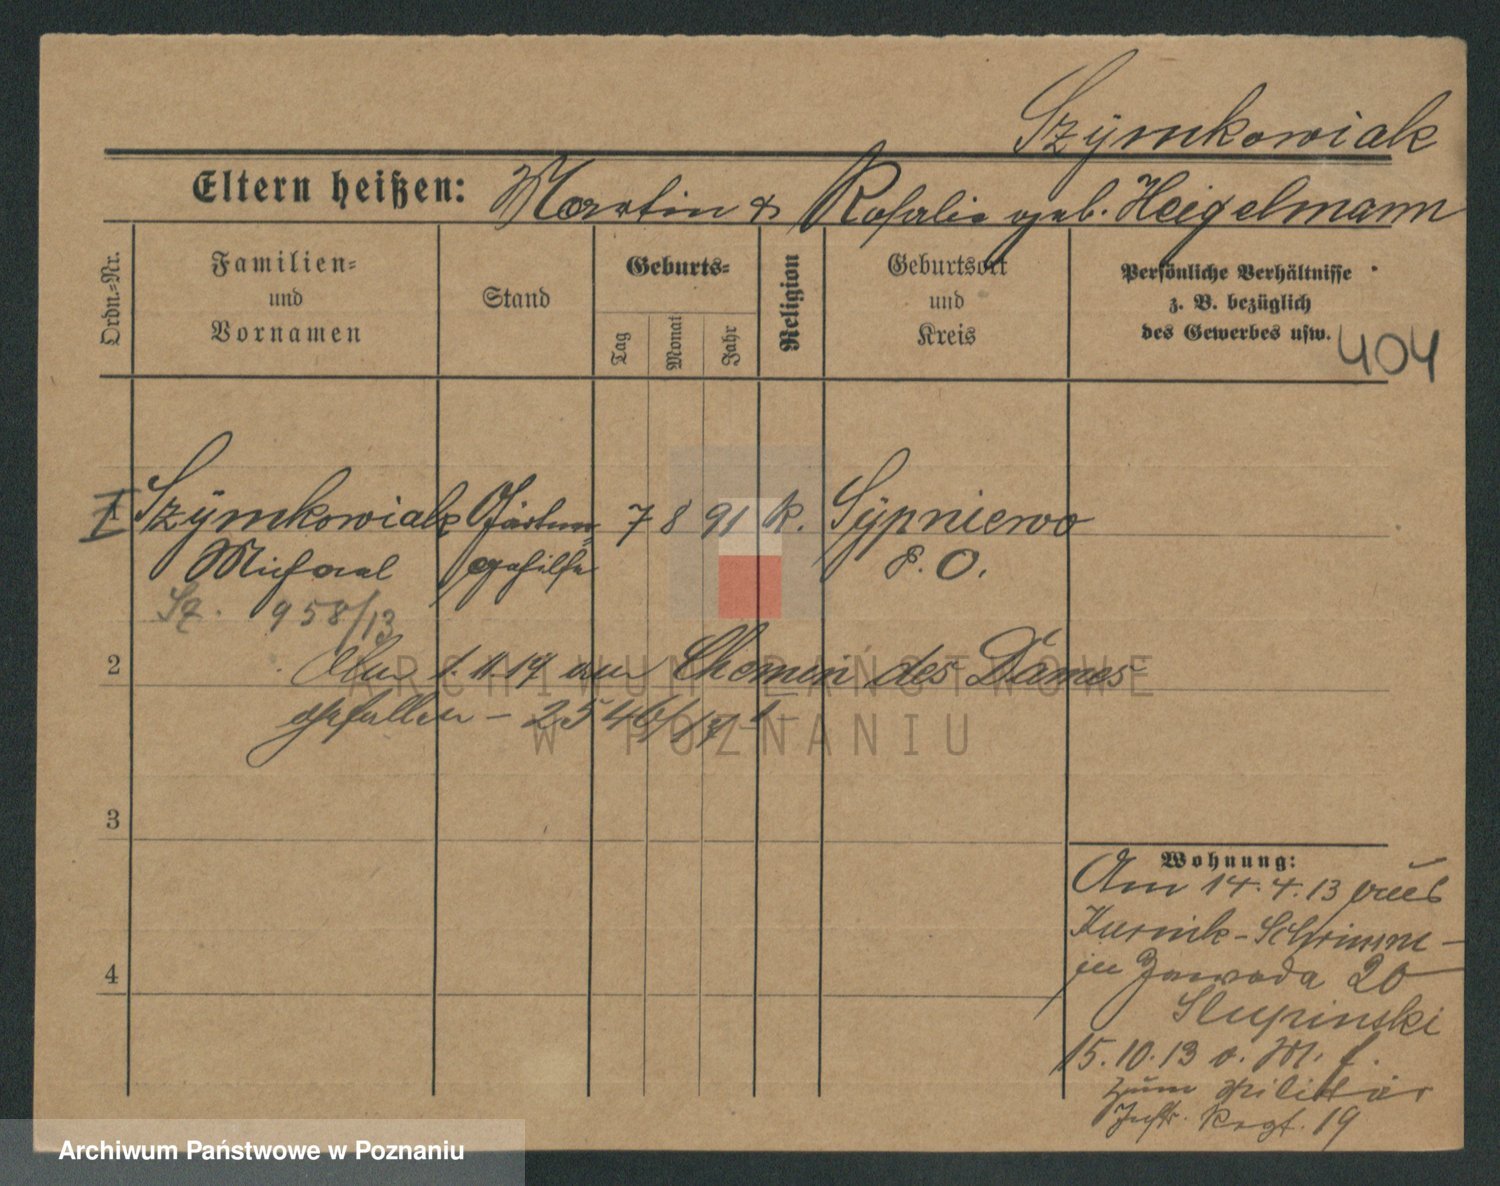 Szÿmkowiak
Eltern heißen: Martin & Rosalie geb. Heigelmann
Ordn.=Nr.
Familien=
und
Vornamen
Stand
Geburts=
Tag
Monat
Jahr
Religion
Geburtsort
und
Kreis
Persönliche Verhältnisse
z. B. bezüglich
des Gewerbes usw.
404
1 Szÿmkowiak Gärtner= 7 8 91 k. Sÿpniewo
Michael gehilfe P. O.
Sz. 958/13
2
Am 1. 11. 17 am Chemin des Dames
gefallen – 2546/17
3
Wohnung:
Am 14. 4. 13 aus
Kurnik – Schrimm –
in Zawada 20
Slupinski
15. 10. 13 v. M. f.
zum Militär
Inftr. Regt. 19
4
ARCHIWUM PAŃSTWOWE
W POZNANIU
Archiwum Państwowe w Poznaniu